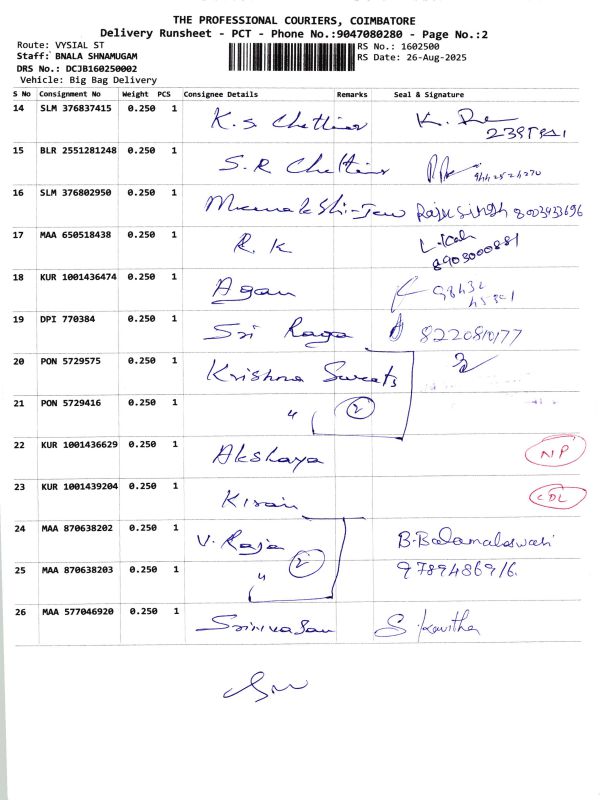 THE PROFESSIONAL COURIERS, COIMBATORE
Delivery Runsheet - PCT - Phone No.:9047080280 - Page No.:2
Route: VYSIAL ST
Staff: BNALA SHNAMUGAM
DRS No.: DCJB160250002
Vehicle: Big Bag Delivery
RS No.: 1602500
RS Date: 26-Aug-2025
S No Consignment No Weight PCS Consignee Details Remarks Seal & Signature
14 SLM 376837415 0.250 1 K.S Chettiar
15 BLR 2551281248 0.250 1 S.R Chettiar
16 SLM 376802950 0.250 1 Raju Singh 8003933696
17 MAA 650518438 0.250 1 R.K
8903000881
18 KUR 1001436474 0.250 1 Agan
19 DPI 770384 0.250 1 Sri Raga 8220810177
20 PON 5729575 0.250 1 Krishna Sweets
21 PON 5729416 0.250 1 " 2
22 KUR 1001436629 0.250 1 Akshaya NP
23 KUR 1001439204 0.250 1 Kiran CDL
24 MAA 870638202 0.250 1 V. Raja B.Balamaheswari
25 MAA 870638203 0.250 1 " 2 9789486916
26 MAA 577046920 0.250 1 Srinivasan S.Kavitha